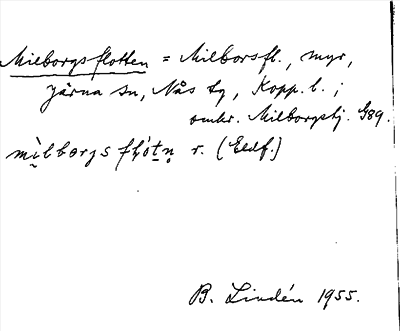 Milborgsflotten = Milborsfl., myr,
Järna sn, Nås tg, Kopp. l. ;
omkr. Milborgstj. G89.
mìlborgs flótn r. (Eldf.)
B. Lindén 1955.